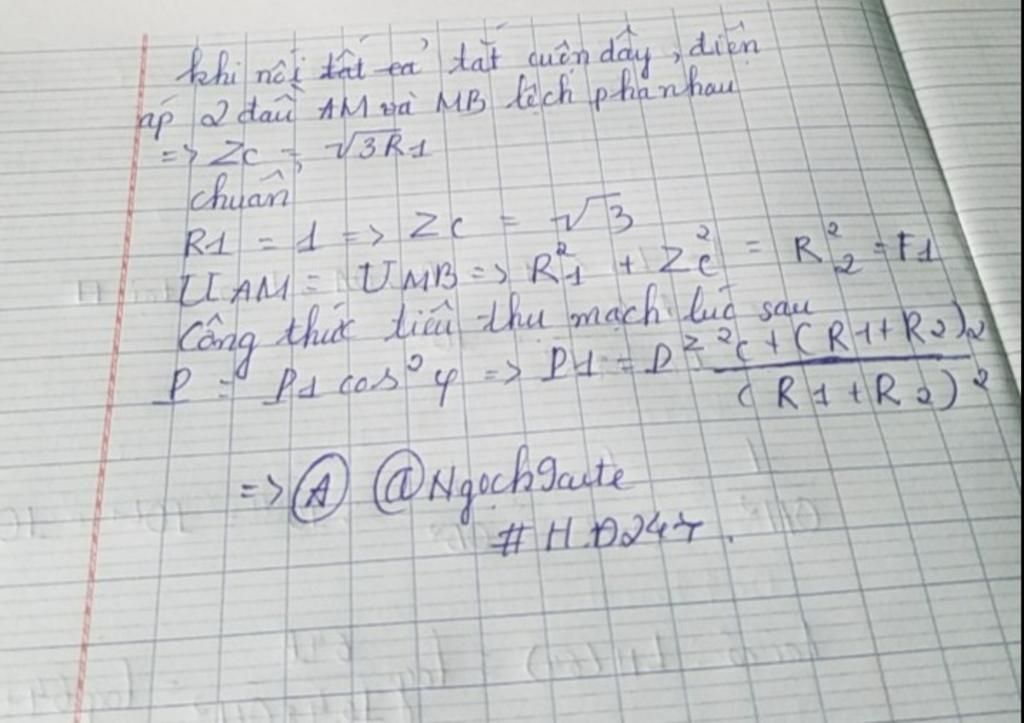 khi nối tất cả tắt cuôn dây, điện
áp 2 đầu AM và MB lệch pha nhau
=> Zc = √3R1
chuẩn
R1 = 1 => Zc = √3
UAM = UMB => R1² + Zc² = R2² =
Công thức tiêu thu mạch lúc sau
P = P1 cos²φ => P1 = P Z²c + (R1 + R2)2 / (R1 + R2)²
=> A @Ngochgaute
# H.D247.